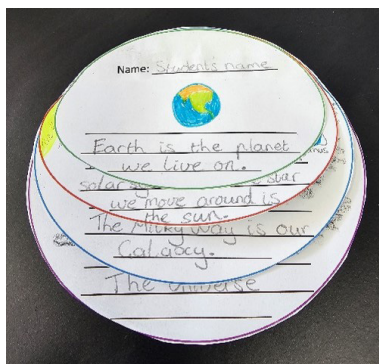 Name: Student's name
Earth is the planet
we live on.
star
we move around is
the sun.
The Milky Way is our
Galaxy.
The universe